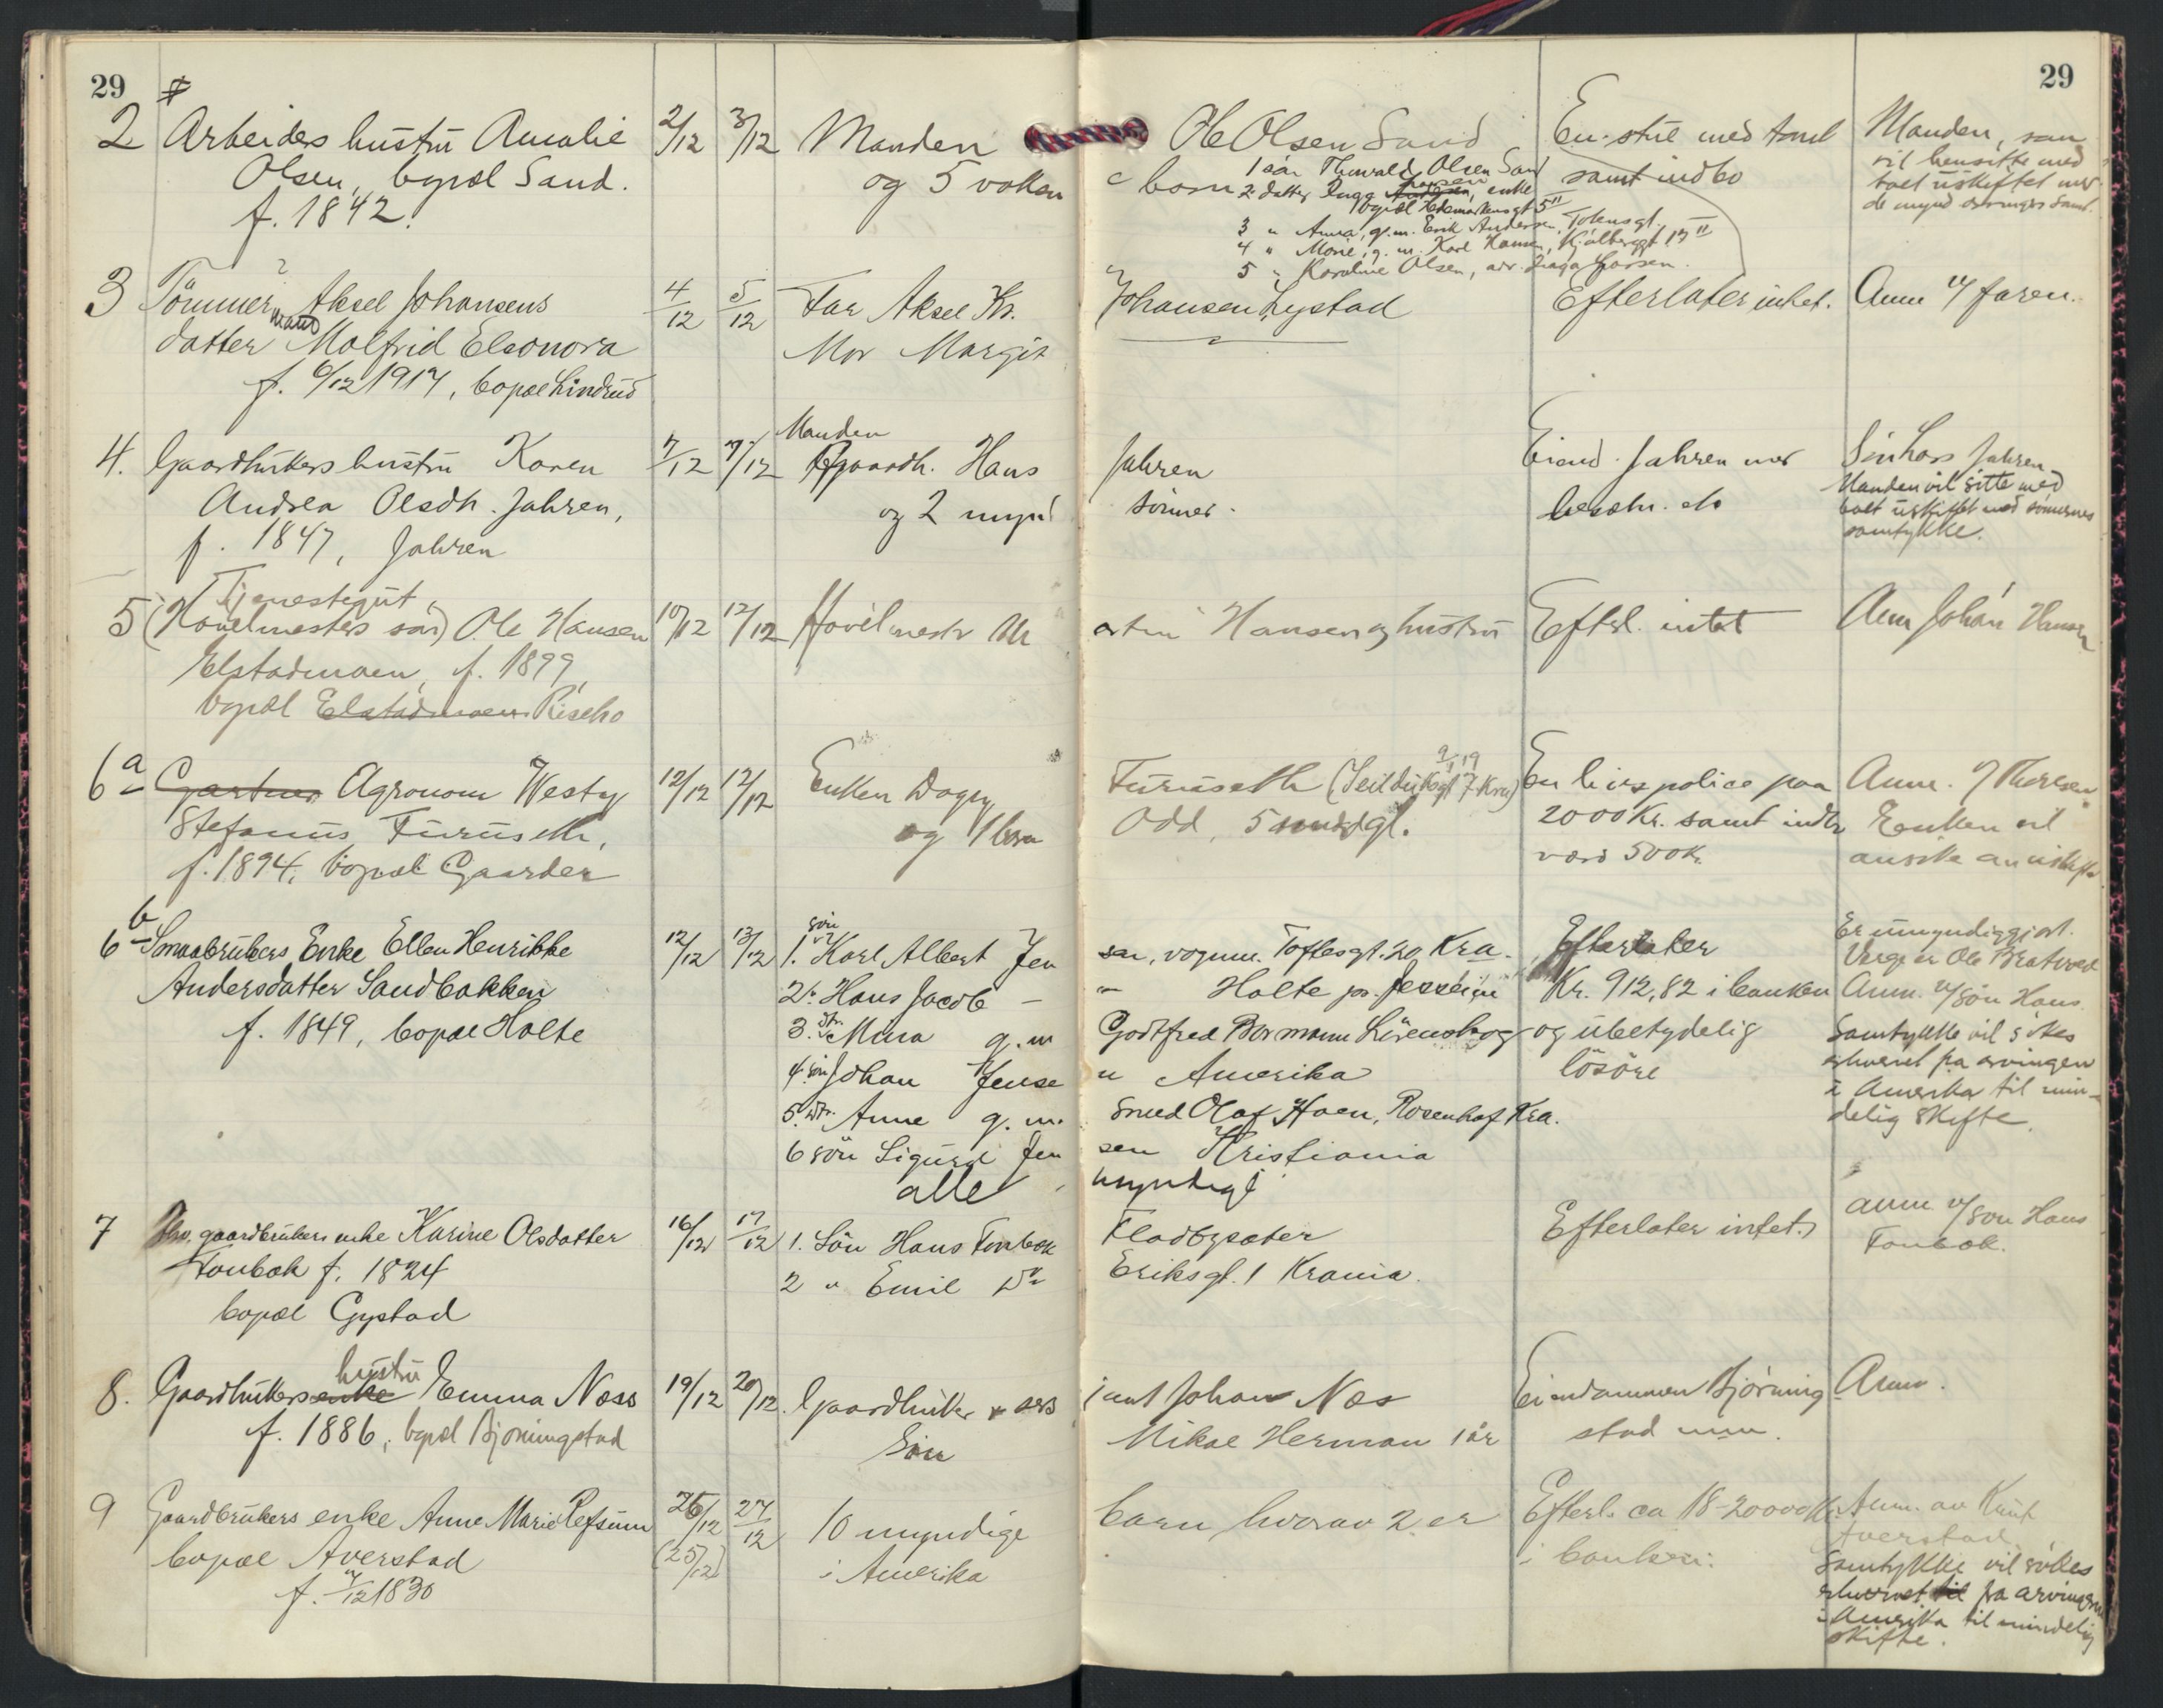 29
29
2 Arbeiders hustru Amalie 2/12 3/12 Manden Ole Olsen Sand En stue med tomt Manden, som
Olsen, bopæl Sand. og 5 voksne børn 1 søn Thorvald Olsen Sand samt indbo vil hensitte med
f. 1842. 2 datter Inga Hansen, enke boet uskiftet med
bopæl Hedemarkensgt 5 II de mynd arvingers samt.
3 " Anna, g.m. Erik Andersen, Totensgt.
4 " Marie, g.m. Karl Hansen, Kjølberggt 13 II
5 " Karoline Olsen, adr. Inga Larsen.
3 Tømmermand Aksel Johansens 4/12 5/12 Far Aksel Kr. Johansen Lystad Efterlater intet. Anm v/ faren.
datter Molfrid Eleonora Mor Margit "
f. 6/12 1917, bopæl Lindrud
4. Gaardbrukers hustru Karen 7/12 7/12 Manden gaardb. Hans Jahren Eiend. Jahren med Søn Lars Jahren
Andrea Olsdtr. Jahren, og 2 mynd sønner. besætn. etc Manden vil sitte med
f. 1847, Jahren boet uskiftet med sønnernes
samtykke.
Tjenestegut,
5 (Høvelmesters søn) Ole Hansen 10/12 12/12 Høvelmestr Martin Hansen og hustru Efterl. intet Anm Johan Hansen
Elstadmoen, f. 1899,
bopæl Elstadmoen Riseho
6a Gartner Agronom Westy 12/12 12/12 Enken Dagny Furuseth (Seildugsgt 7 Kra) 9/1 19 En livspolice paa Anm.
Stefanus Furuseth, og 1 barn Odd, 5 mndgl. 2000 Kr. samt indbo Enken vil
f. 1894, bopæl Gaarder værd 500 Kr.
6b Smaabrukers Enke Ellen Henrikke 12/12 13/12 1. søn Karl Albert Jensen, vognm. Toftesgt. 20, Kra. Efterlater Er umyndiggjort.
Andersdatter Sandbakken 2. " Hans Jacob — " Holte pr. Jessheim Kr. 912,82 i banken Verge er Ole Bratvold
f. 1849, bopæl Holte 3. dtr. Mina g.m Godtfred Bormann Lørenskog og ubetydelig Anm. v/ søn Hans.
4. søn Johan Jensen Amerika løsøre Samtykke vil søkes
5. dtr. Anne g.m. Smed Olaf Hoen, Rosenhof Kra. erhvervet fra arvingen
6 søn Sigurd Jensen Kristiania i Amerika til min-
alle myndige delig skifte.
7 Fhv. gaardbrukers enke Karine Olsdatter 16/12 17/12 1. Søn Hans Tonbak Fladbysæter Efterlater intet. anm v/ søn Hans
Tonbak f. 1824 2 " Emil Do Eriksgt. 1 Krania. Tonbak.
bopæl Gystad
8. Gaardbrukers enke hustru Emma Næss 19/12 20/12. Gaardbruker Johan Næs Eiendommen Bjørning Anm.
f. 1886, bopæl Bjørningstad Søn Mikal Herman 1 år stad
9 Gaardbrukers enke Anne Marie Refsum 26/12 27/12 10 myndige barn hvorav 2 er Efterl. ca 18-20000 Kr Anm. av Knut
bopæl Averstad (25/12) i Amerika i banken. Averstad.
f. 1830 Samtykke vil søkes
erhvervet til fra arvingerne
i Amerika til mindelig
skifte.